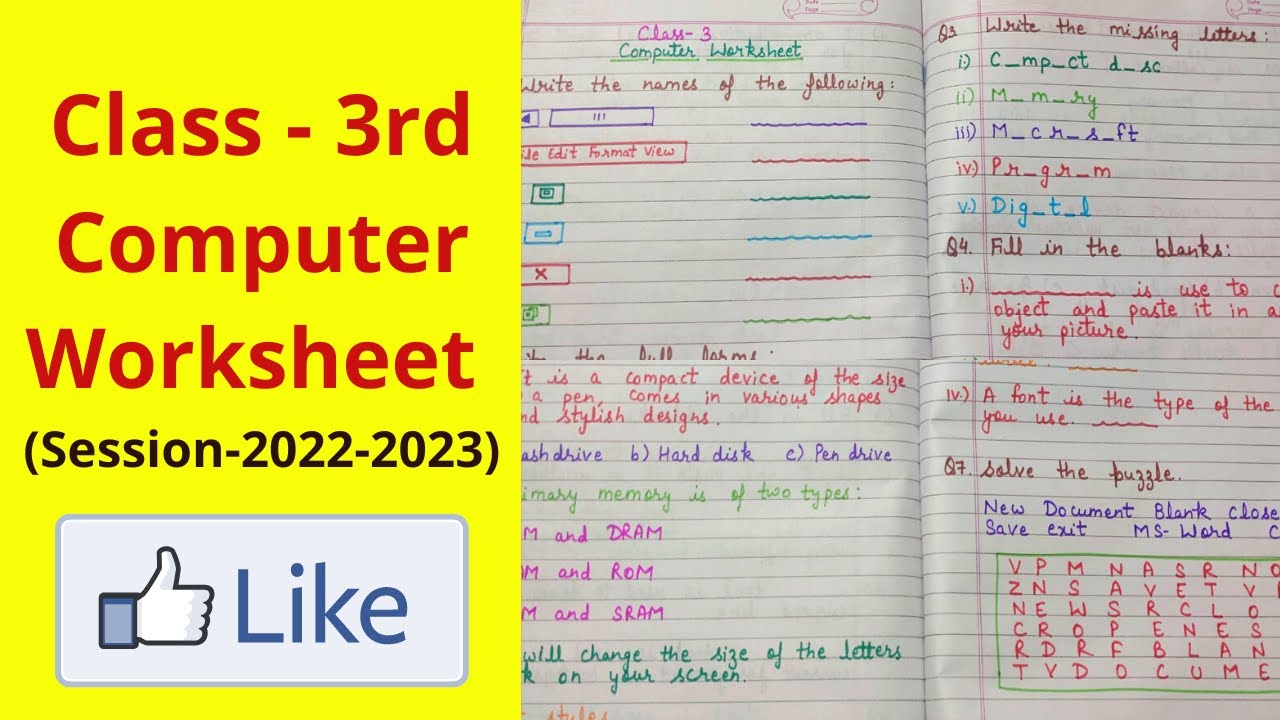 Class - 3rd
Computer
Worksheet
(Session-2022-2023)
Like
Date
Page
Class- 3
Computer Worksheet
Write the names of the following:
ile Edit Format View
t is a compact device of the size
a pen, comes in various shapes
nd stylish designs.
ashdrive b) Hard disk c) Pen drive
imary memory is of two types:
M and DRAM
M and ROM
M and SRAM
will change the size of the letters
k on your screen.
styles
Date
Page
Q3 Write the missing letters:
i.) C_mp_ct d_sc
ii) M_m_ry
iii) M_cr_s_ft
iv.) Pr_gr_m
v.) Dig_t_l
Q4. Fill in the blanks:
i.) ________ is use to c
object and paste it in a
your picture.
iv.) A font is the type of the
you use. ____
Q7. Solve the puzzle.
New Document Blank close
Save exit MS-Word C
V P M N A S R N O
Z N S A V E T V
N E W S R C L O
C R O P E N E S
R D R F B L A N
T V D O C U M E